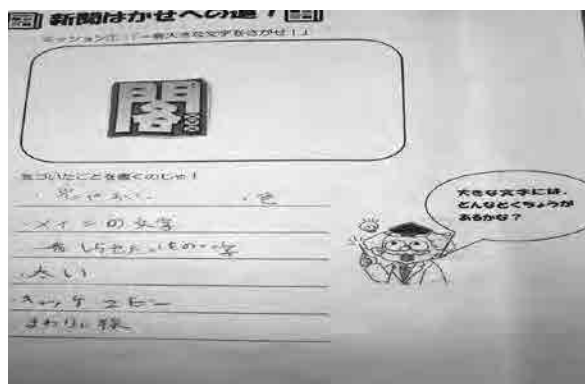 新聞はかせへの道!
ミッション①:「一番大きな文字をさがせ!」
閣
気づいたことを書くのじゃ!
・色
メインの文字
一番しらせたいもの 字
・太い
・キャッチコピー
まわりに線
大きな文字には、
どんなとくちょうが
あるかな?